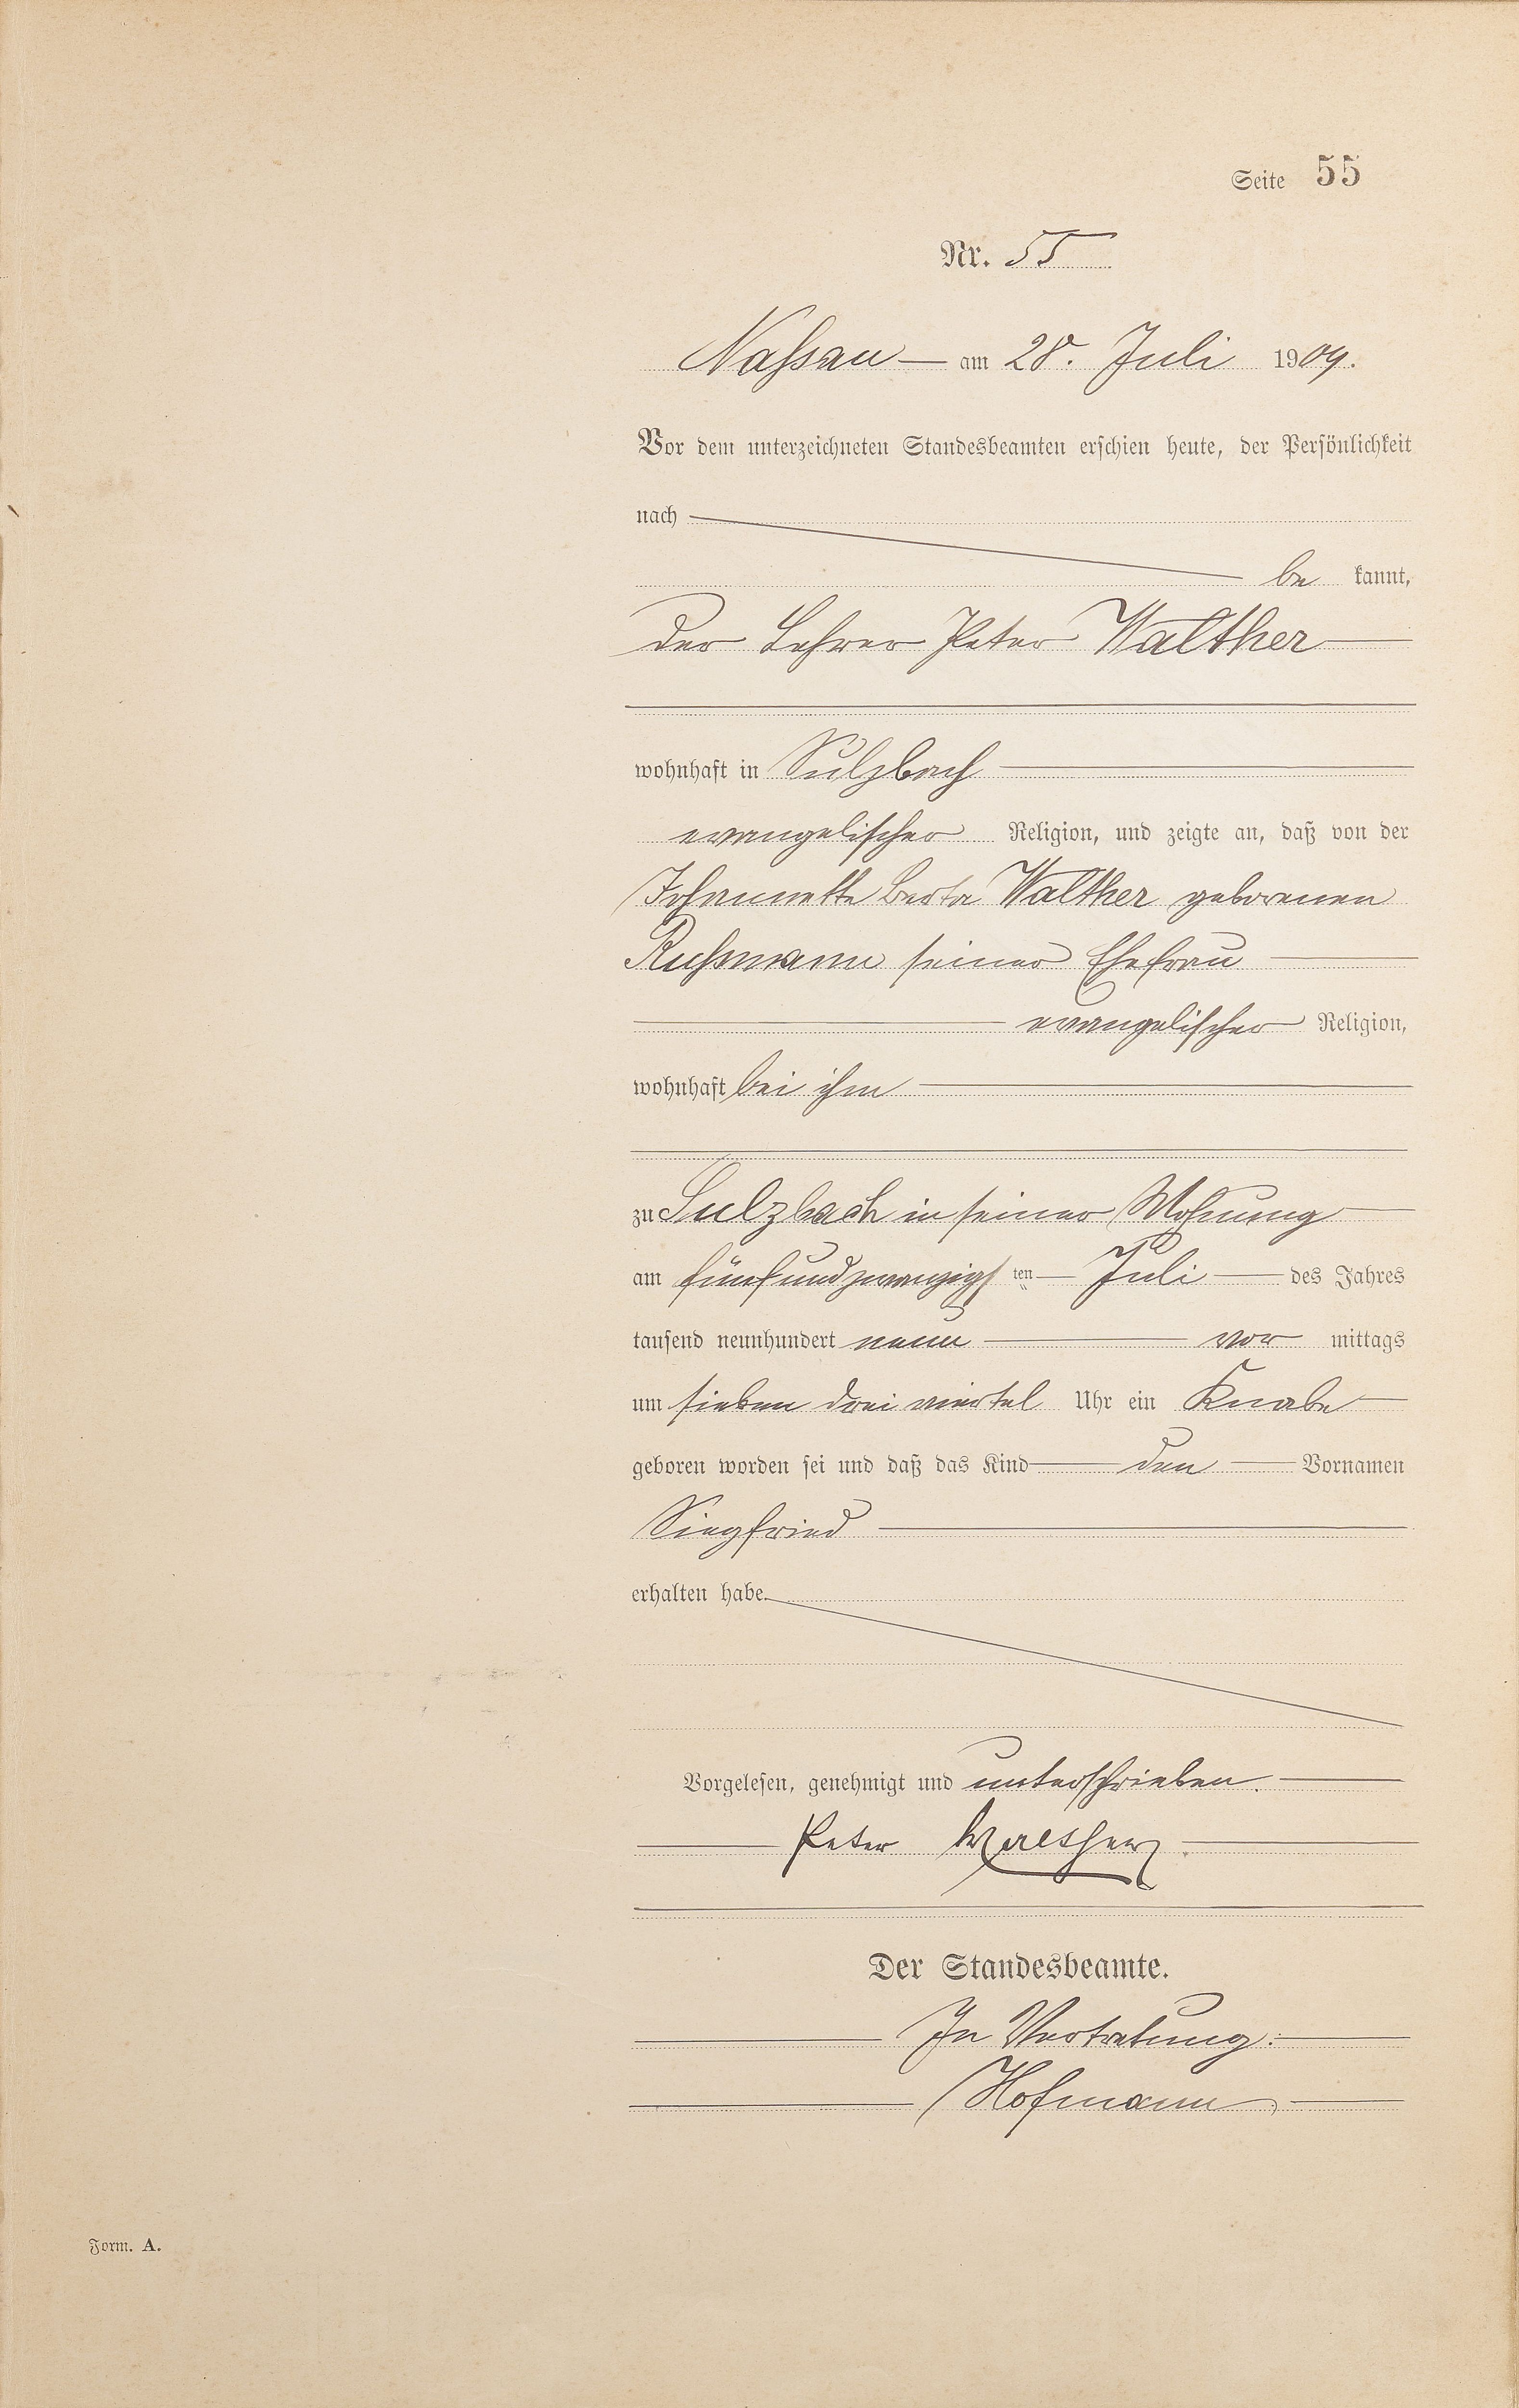 Seite 55
Nr. 55
Nassau am 28. Juli 1909.
Vor dem unterzeichneten Standesbeamten erschien heute, der Persönlichkeit
nach
be kannt,
der Lehrer Peter Walther
wohnhaft in Sulzbach
evangelischer Religion, und zeigte an, daß von der
Johannette Berta Walther geborenen
Rußmann seiner Ehefrau
evangelischer Religion,
wohnhaft bei ihm
zu Sulzbach in seiner Wohnung
am fünfundzwanzigsten Juli des Jahres
tausend neunhundert neun vor mittags
um sieben drei viertel Uhr ein Knabe
geboren worden sei und daß das Kind den Vornamen
Siegfried
erhalten habe.
Vorgelesen, genehmigt und unterschrieben.
Peter Walther
Der Standesbeamte.
In Vertretung:
Hofmann
Form. A.